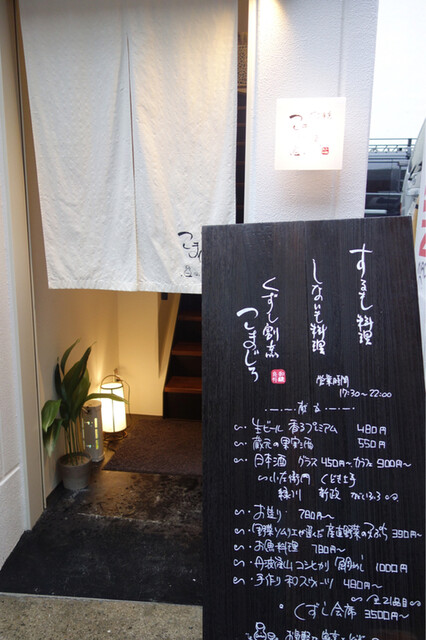 するも料理
しないも料理
くずし割烹
こまじろ
営業時間
17:30〜22:00
生ビール 香るプレミアム 480円
蔵元の果実酒 550円
日本酒 グラス 450円〜 カラフェ 900円〜
小左衛門 くどき上手
緑川 新政
お造り 780円〜
野菜ソムリエが選んだ産直野菜の 390円〜
お魚料理 780円〜
丹波篠山コシヒカリ 鯛めし 1000円
手作り和スウィーツ 480円〜
全21品目
くずし会席 3500円〜